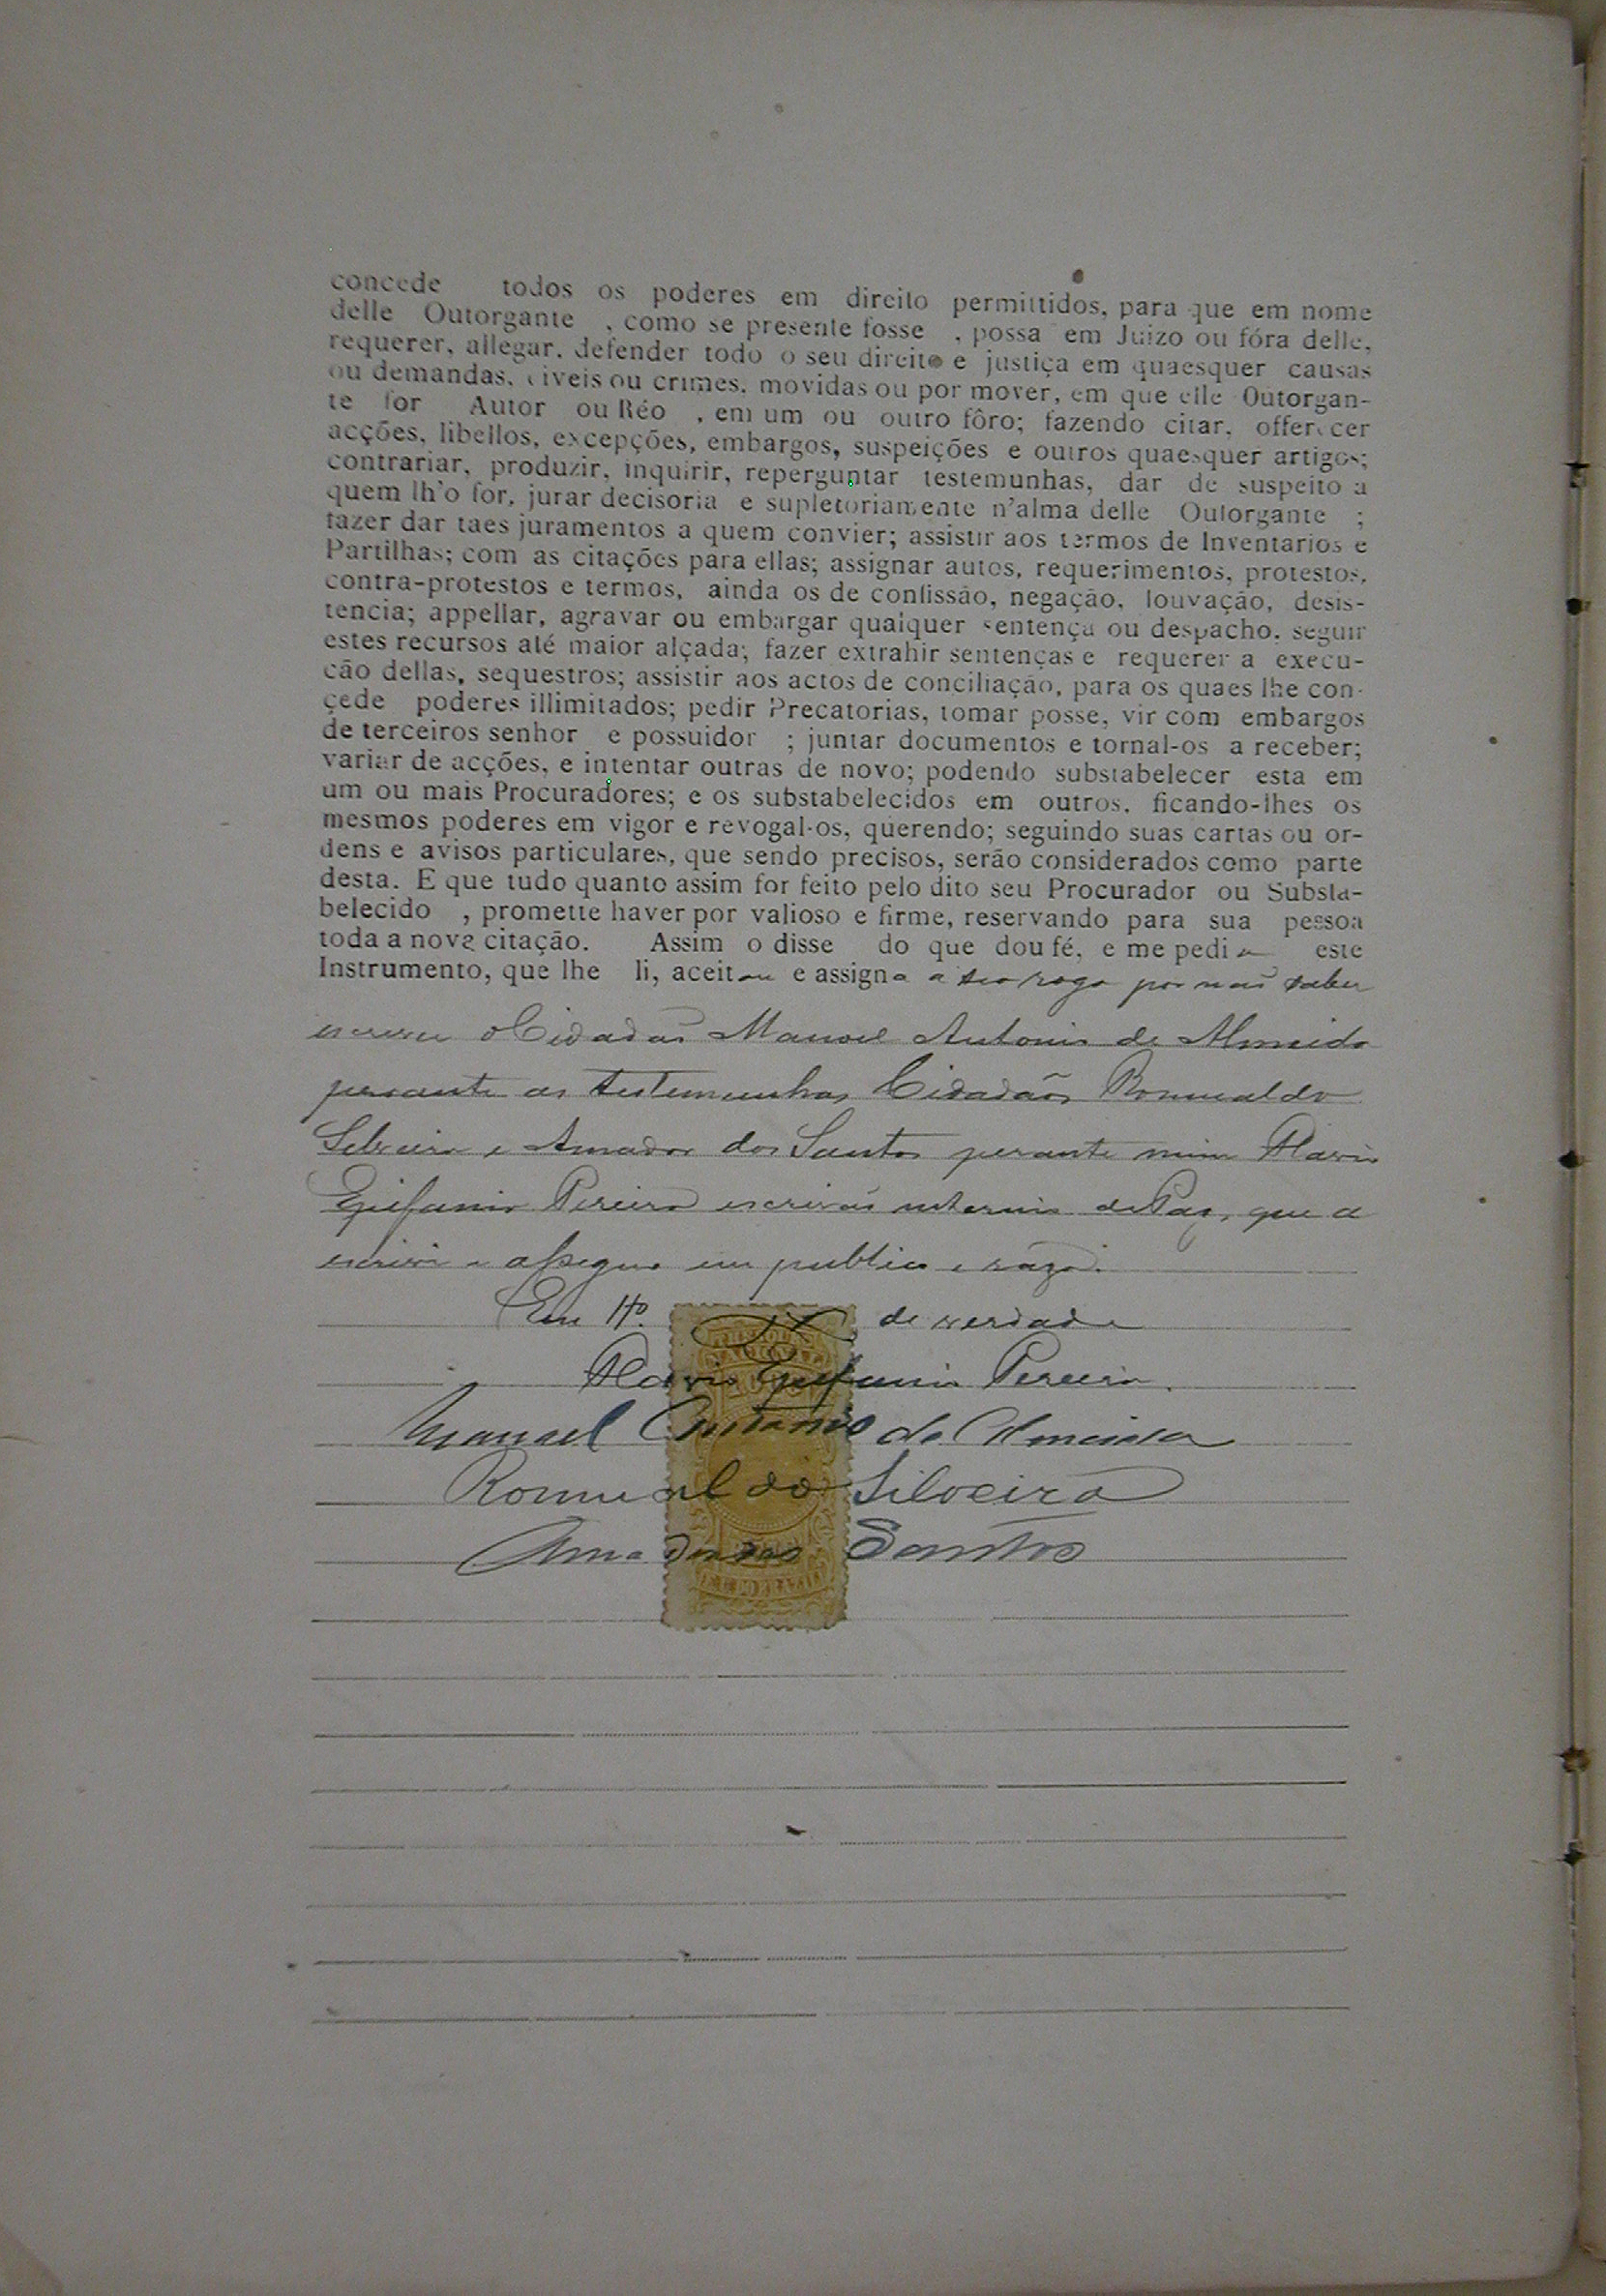 concede todos os poderes em direito permittidos, para que em nome
delle Outorgante , como se presente fosse , possa em Juizo ou fóra delle,
requerer, allegar, defender todo o seu direito e justiça em quaesquer causas
ou demandas, civeis ou crimes, movidas ou por mover, em que elle Outorgan-
te for Autor ou Réo , em um ou outro fôro; fazendo citar, offerecer
acções, libellos, excepções, embargos, suspeições e outros quaesquer artigos;
contrariar, produzir, inquirir, reperguntar testemunhas, dar de suspeito a
quem lh'o for, jurar decisoria e supletoriamente n'alma delle Outorgante ;
fazer dar taes juramentos a quem convier; assistir aos termos de Inventarios e
Partilhas; com as citações para ellas; assignar autos, requerimentos, protestos,
contra-protestos e termos, ainda os de confissão, negação, louvação, desis-
tencia; appellar, agravar ou embargar qualquer sentença ou despacho, seguir
estes recursos até maior alçada; fazer extrahir sentenças e requerer a execu-
cão dellas, sequestros; assistir aos actos de conciliação, para os quaes lhe con-
çede poderes illimitados; pedir Precatorias, tomar posse, vir com embargos
de terceiros senhor e possuidor ; juntar documentos e tornal-os a receber;
variar de acções, e intentar outras de novo; podendo substabelecer esta em
um ou mais Procuradores; e os substabelecidos em outros, ficando-lhes os
mesmos poderes em vigor e revogal-os, querendo; seguindo suas cartas ou or-
dens e avisos particulares, que sendo precisos, serão considerados como parte
desta. E que tudo quanto assim for feito pelo dito seu Procurador ou Substa-
belecido , promette haver por valioso e firme, reservando para sua pessoa
toda a nova citação. Assim o disse do que dou fé, e me pediu este
Instrumento, que lhe li, aceitou e assigna a seo rogo por não saber
escrever o Cidadão Manoel Antonio de Almeida
perante as testemunhas Cidadãos Romualdo
Silveira e Amador dos Santos perante mim Flavio
Epifanio Pereira escrivão interino de Paz, que a
escrevi e assigno em publico e razo.
Em tº. de verdade
Flavio Epifanio Pereira.
Manoel Antonio de Almeida
Romualdo Silveira
Amador dos Santos
THESOURO
NACIONAL